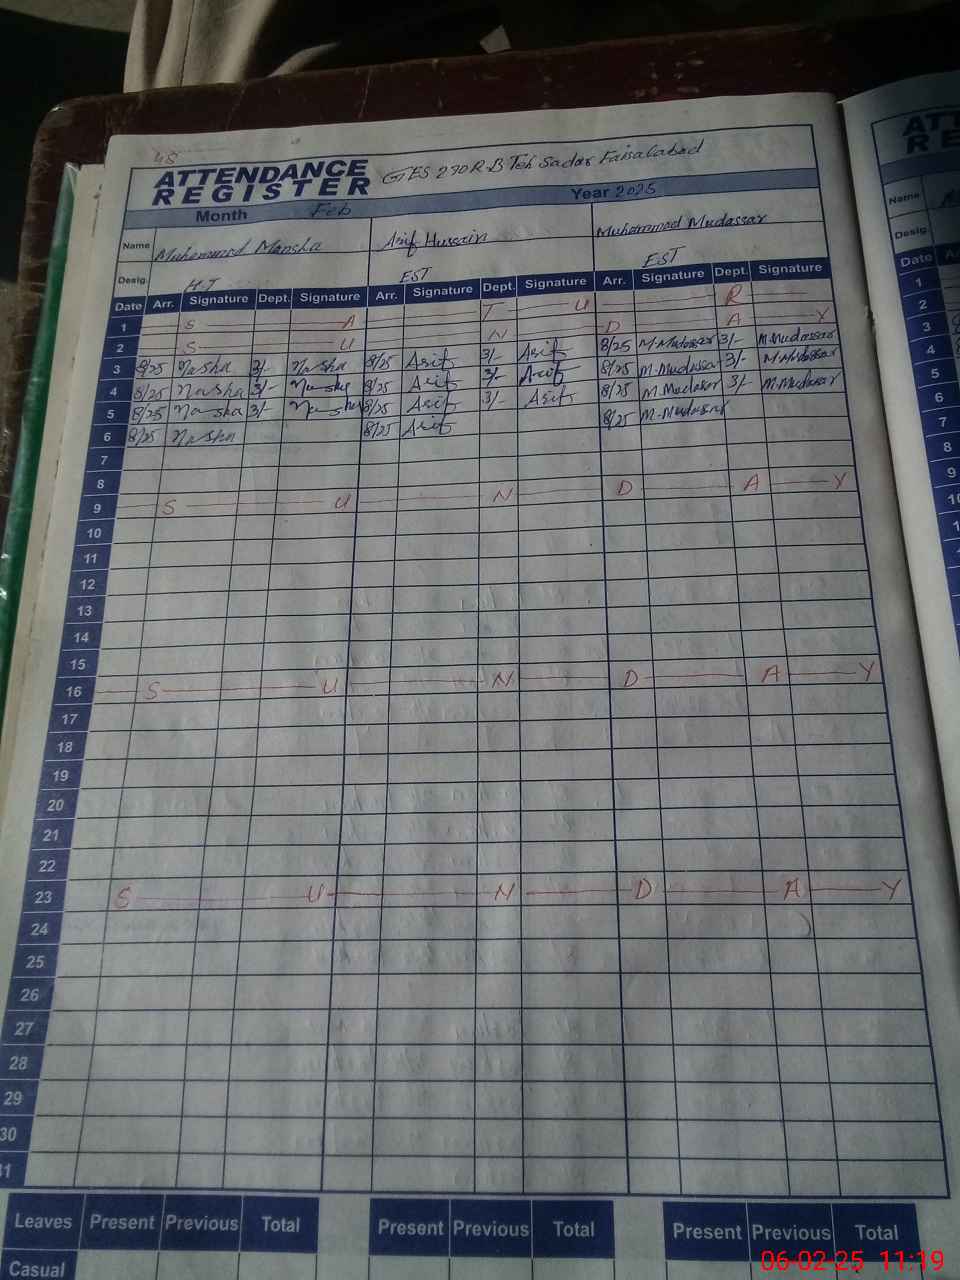 48
ATTENDANCE REGISTER GES 290 R-B Teh Sadar Faisalabad
Month Feb Year 2025
Name Muhammad Mansha Asif Hussain Muhammad Mudassar
Desig. H.T EST EST
Date Arr. Signature Dept. Signature Arr. Signature Dept. Signature Arr. Signature Dept. Signature
1 S A T U R D A Y
2 S U N D A Y
3 8/25 Masha 3/- Masha 8/25 Asif 3/- Asif 8/25 M.Mudassar 3/- M.Mudassar
4 8/25 Masha 3/- Masha 8/25 Asif 3/- Asif 8/25 M.Mudassar 3/- M.Mudassar
5 8/25 Masha 3/- Masha 8/25 Asif 3/- Asif 8/25 M.Mudasar 3/- M.Mudasar
6 8/25 Masha 8/25 Asif 8/25 M.Mudasar
7
8
9 S U N D A Y
10
11
12
13
14
15
16 S U N D A Y
17
18
19
20
21
22
23 S U N D A Y
24
25
26
27
28
29
30
31
Leaves Present Previous Total Present Previous Total Present Previous Total
Casual
06-02-25 11:19
Name
Desig.
Date
1
2
3
4
5
6
7
8
9
10